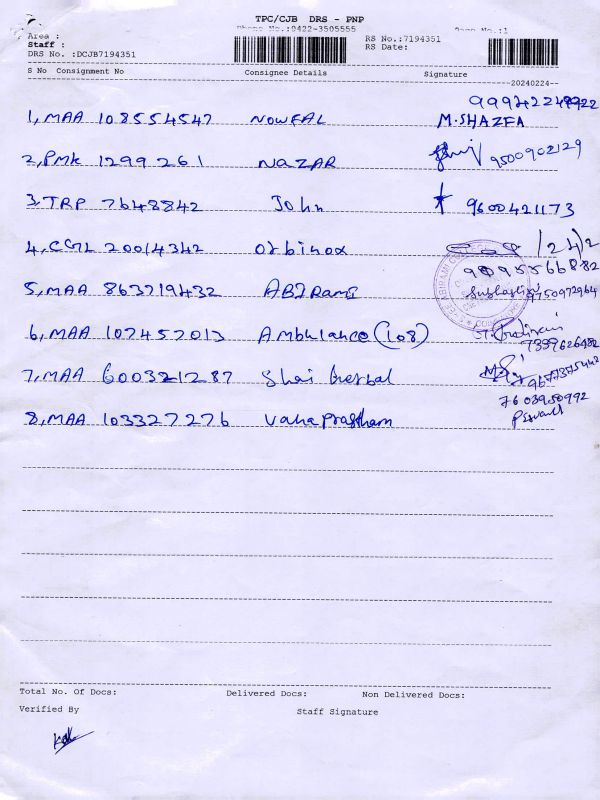 TPC/CJB DRS - PNP
Phone No.:0422-3505555
Area :
Staff :
DRS No. :DCJB7194351
RS No.:7194351
RS Date:
Page No.:1
S No Consignment No Consignee Details Signature
20240224
1, MAA 108554547 NOWFAL M.SHAZFA
2, PMK 1299261 NAZAR 9500902129
3. TRP 7648842 John 9600421173
4, CGL 20014342 Orbinox
5, MAA 863719432 ABIRAMI 9750972964
6, MAA 107457013 Ambulance (108) 7339626482
7, MAA 600321287
8, MAA 103327276 vanaprastham 7603950992
Total No. Of Docs: Delivered Docs: Non Delivered Docs:
Verified By Staff Signature